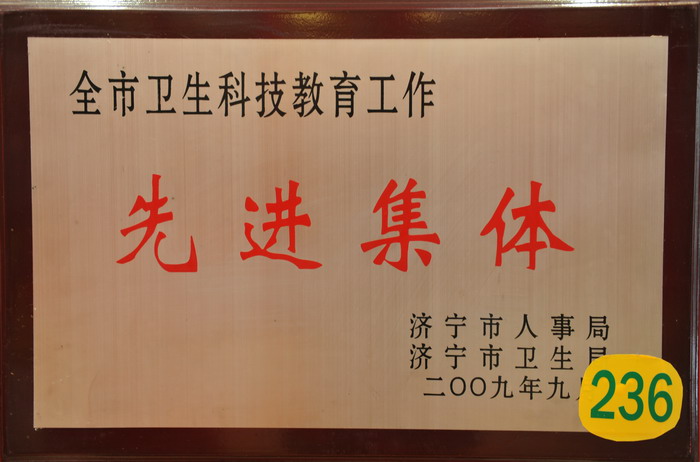 全市卫生科技教育工作
先进集体
济宁市人事局
济宁市卫生局
二〇〇九年九月
236